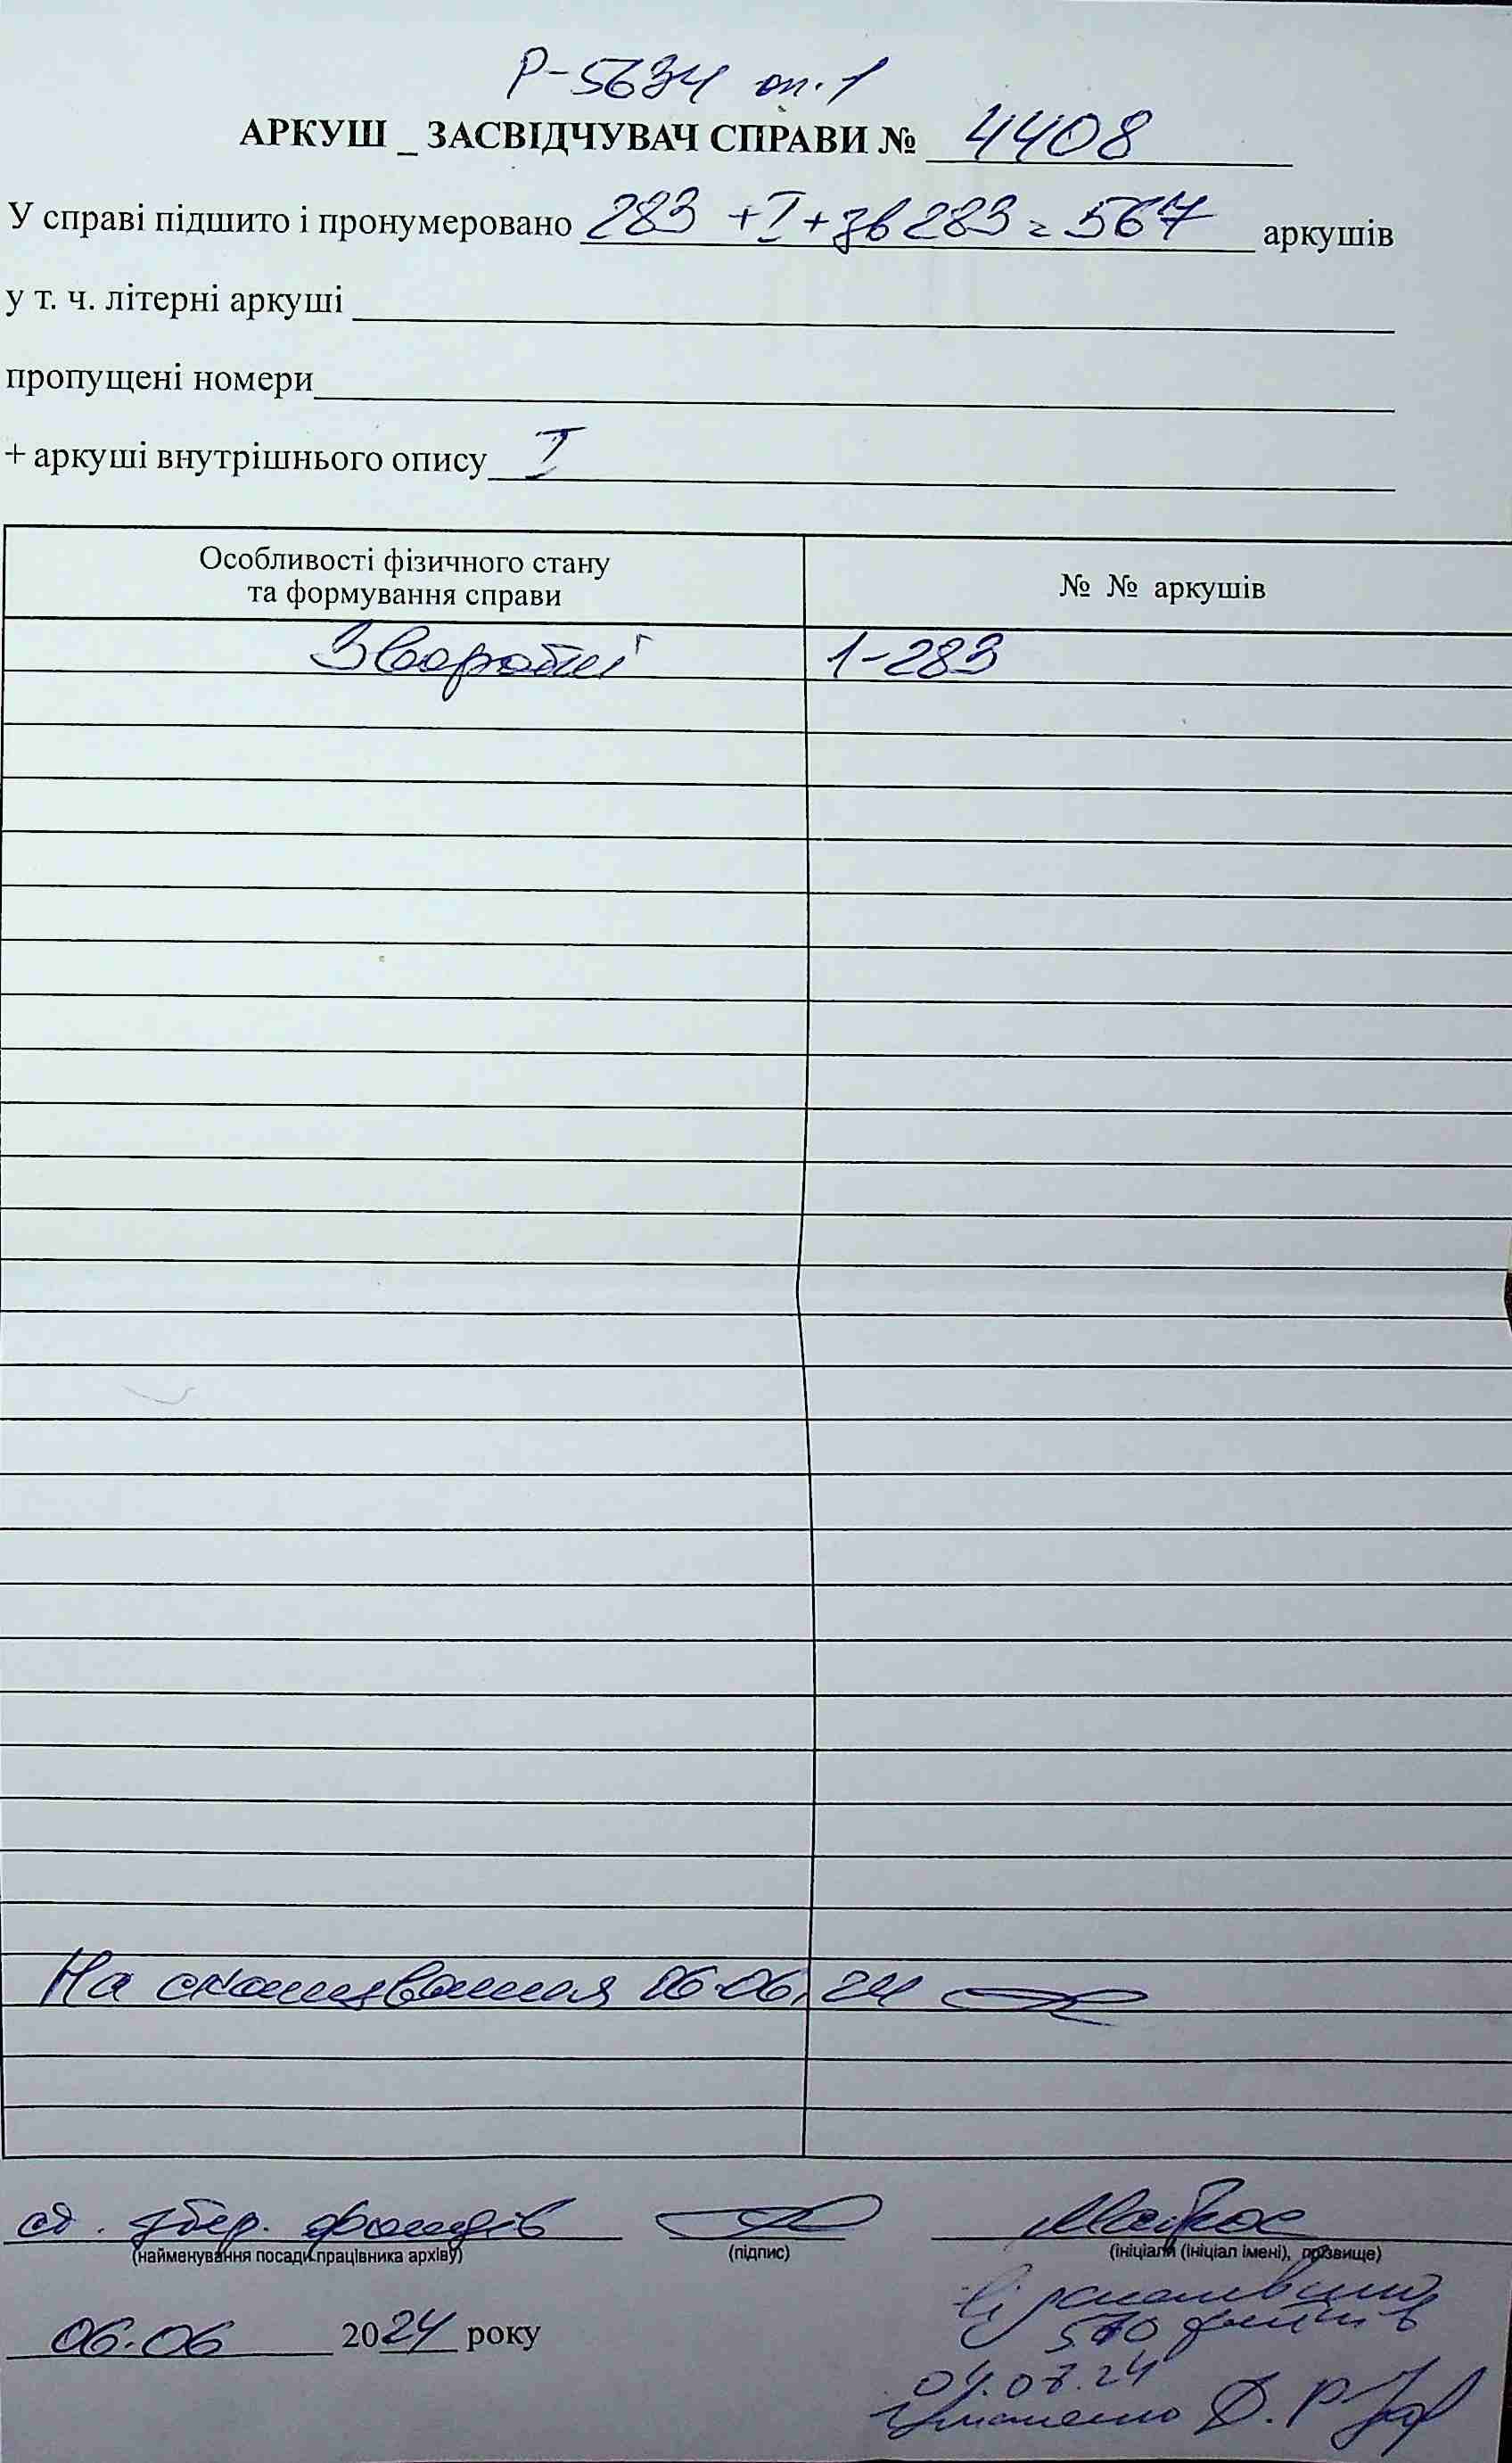 Р-5634 оп. 1
АРКУШ _ ЗАСВІДЧУВАЧ СПРАВИ № 4408
У справі підшито і пронумеровано 283 + I + зв 283 = 567 аркушів
у т. ч. літерні аркуші
пропущені номери
+ аркуші внутрішнього опису I
Особливості фізичного стану та формування справи
№ № аркушів
Зворотні 1-283
На сканування 06.06.24
збер. фондів
(найменування посади працівника архіву) (підпис) (ініціали (ініціал імені), прізвище)
06.06 2024 року
570 файлів
04.07.24